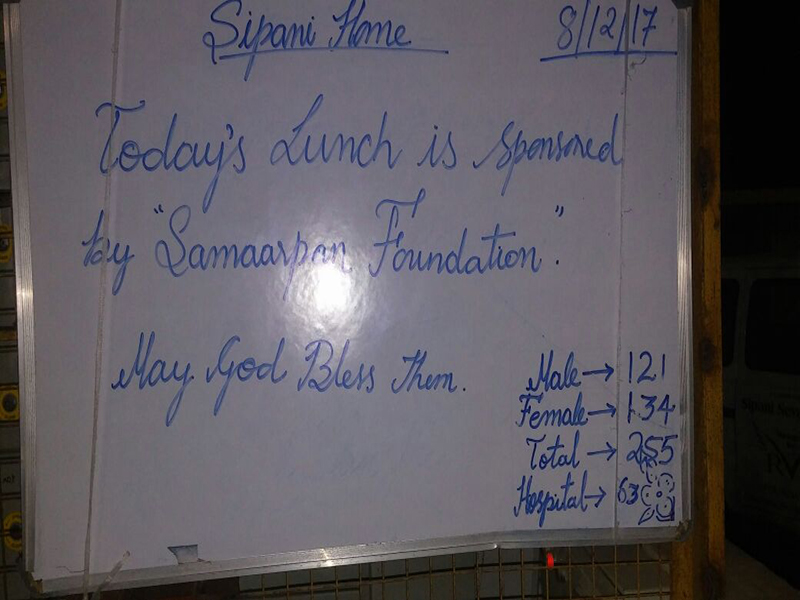 Sipani Home 8/12/17
Today's Lunch is sponsored
by "Samaarpan Foundation".
May God Bless Them.
Male → 121
Female → 134
Total → 255
Hospital → 63